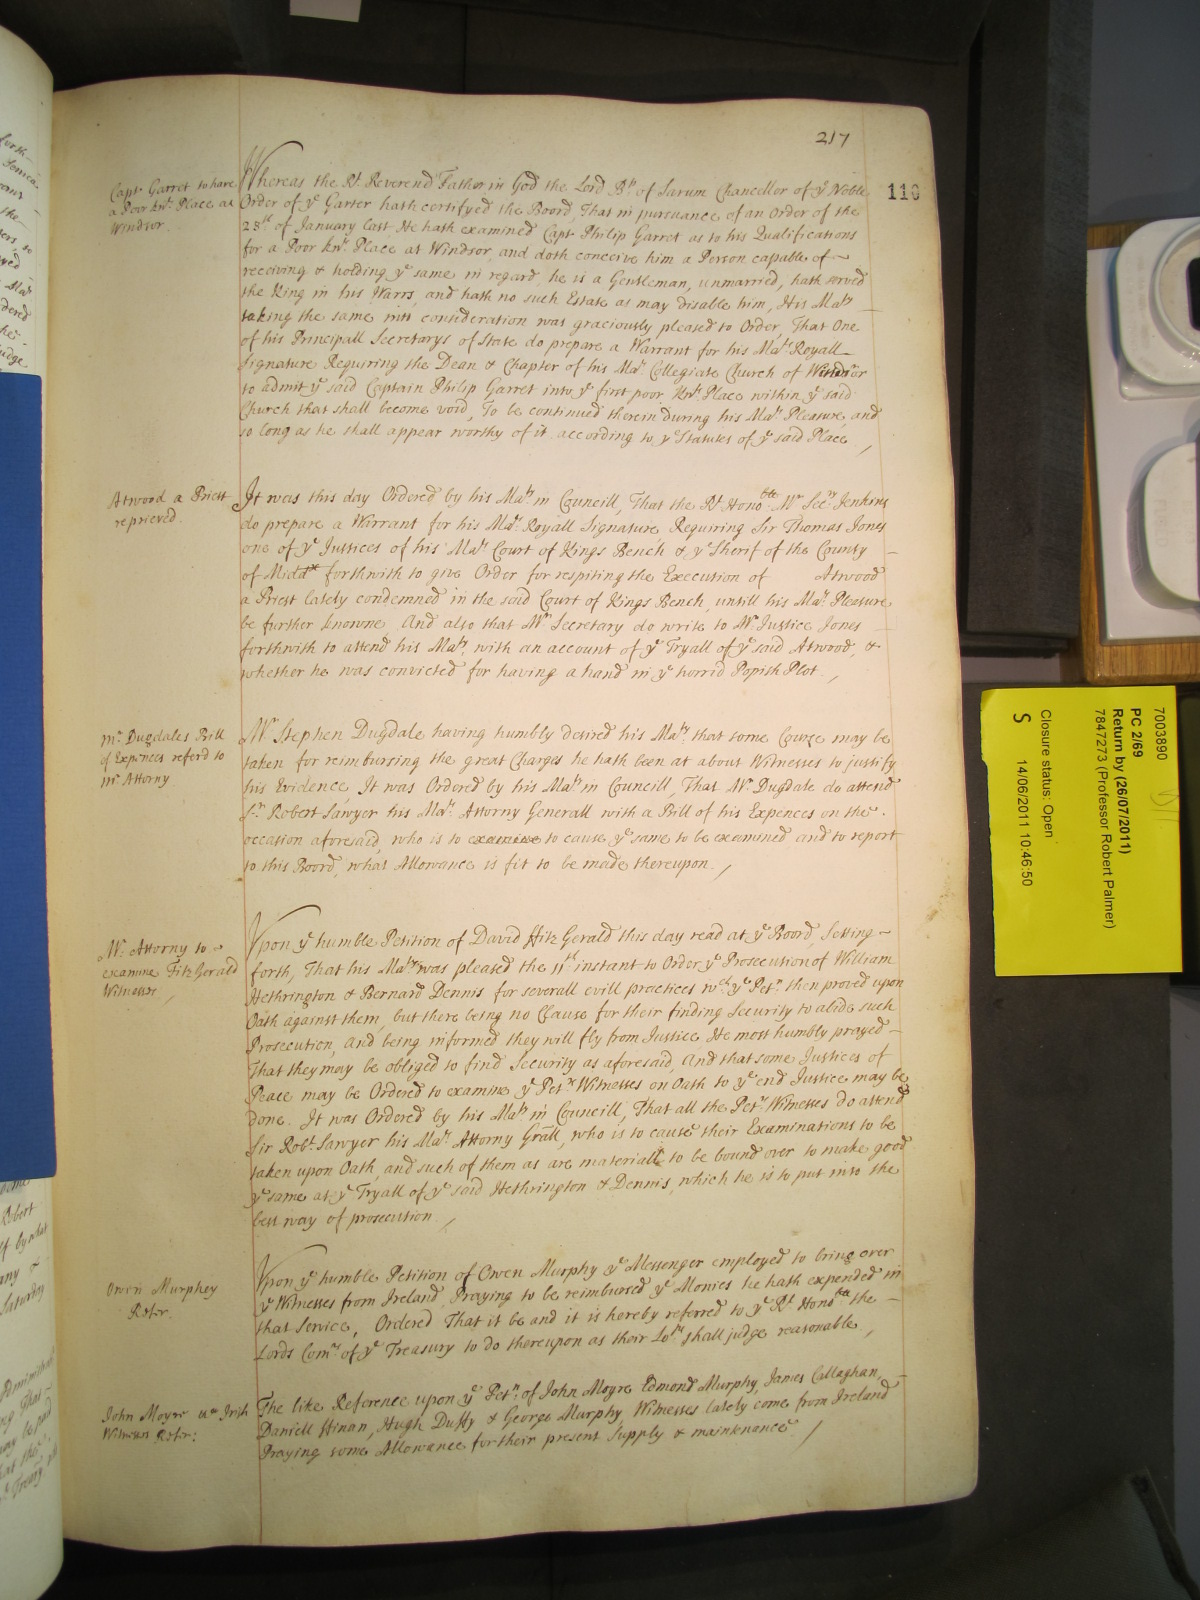 217
110
Capt Garret to have
a Poor knt. Place at
Windsor.
Whereas the Rt. Reverend Father in God the Lord Bp. of Sarum Chancellor of ye Noble
Order of ye Garter hath certifyed the Board, That in pursuance of an Order of the
28th of January last, He hath examined Capt Philip Garret as to his Qualifications
for a Poor knts. Place at Windsor, and doth conceive him a Person capable of
receiving & holding ye same in regard he is a Gentleman, unmarried, hath served
the King in his Warrs, and hath no such Estate as may disable him, His Maty.
taking the same into consideration was graciously pleased to Order, That One
of his Principall Secretarys of State do prepare a Warrant for his Mats. Royall
Signature Requiring the Dean & Chapter of his Mats. Collegiate Church of Windsor
to admit ye said Captain Philip Garret into ye first poor Knts. Place within ye said
Church that shall become void, To be continued therein during his Mats. Pleasure, and
so long as he shall appear worthy of it according to ye Statutes of ye said Place
Atwood a Priest
reprieved.
It was this day Ordered by his Maty. in Councill, That the Rt. Honoble. Mr. Secry Jenkins
do prepare a Warrant for his Mats. Royall Signature Requiring Sir Thomas Jones
one of ye Justices of his Mats. Court of Kings Bench & ye Sherif of the County
of Middx forthwith to give Order for respiting the Execution of Atwood
a Priest lately condemned in the said Court of Kings Bench, untill his Mats. Pleasure
be further knowne And also that Mr. Secretary do write to Mr. Justice Jones
forthwith to attend his Maty. with an account of ye Tryall of ye said Atwood, &
whether he was convicted for having a hand in ye horrid Popish Plot.
Mr. Dugdales Bill
of Expences referd to
Mr Attorny
Mr. Stephen Dugdale having humbly desired his Maty. that some Course may be
taken for reimbursing the great Charges he hath been at about Witnesses to justify
his Evidence It was Ordered by his Maty. in Councill, That Mr. Dugdale do attend
Sr. Robert Sawyer his Mats. Attorny Generall with a Bill of his Expences on the
occasion aforesaid, who is to examine to cause ye same to be examined and to report
to this Board, what Allowance is fit to be made thereupon.
Mr. Attorny to
examine Fitz Gerald
Witnesses
Upon ye humble Petition of David Fitz Gerald this day read at ye Board, Setting
forth, That his Maty. was pleased the 11th instant to Order ye Prosecution of William
Hethrington & Bernard Dennis for severall evill practices wch. ye Petr. then proved upon
Oath against them, but there being no Clause for their finding Security to abide such
Prosecution, And being informed they will fly from Justice He most humbly prayed
That they may be obliged to find Security as aforesaid, And that some Justices of
Peace may be Ordered to examine ye Petrs. Witnesses on Oath to ye end Justice may be
done. It was Ordered by his Maty. in Councill, That all the Petrs. Witnesses do attend
Sir Robt. Sawyer his Mats. Attorny Grall, who is to cause their Examinations to be
taken upon Oath, and such of them as are materiall to be bound over to make good
ye same at ye Tryall of ye said Hethrington & Dennis, which he is to put into the
best way of prosecution.
Owen Murphey
Refer.
Upon ye humble Petition of Owen Murphy ye Messenger employed to bring over
ye Witnesses from Ireland, Praying to be reimbursed ye Monies he hath expended in
that Service, Ordered That it be and it is hereby referred to ye Rt. Honoble the
Lords Comrs. of ye Treasury to do thereupon as their Lops. shall judge reasonable,
John Moyre Irish
Witnesses Refer:
The like Reference upon ye Petn. of John Moyre Edmond Murphy, James Callaghan,
Daniell Hinan, Hugh Duffy & George Murphy, Witnesses lately come from Ireland
Praying some Allowance for their present Supply & maintenance
7003890
PC 2/69
Return by (26/07/2011)
7847273 (Professor Robert Palmer)
Closure status: Open
S 14/06/2011 10:46:50